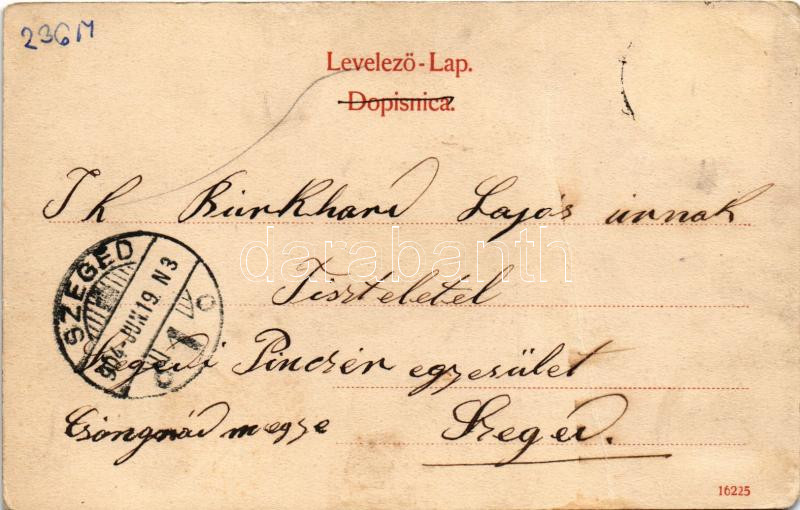 236M
Levelező-Lap.
Dopisnica.
T k Burkhard Lajos úrnak
Tisztelettel
SZEGED
904-JUN.19. N3
1
Szegedi Pinczér egyesület
Csongrád megye Szeged.
darabanth
16225